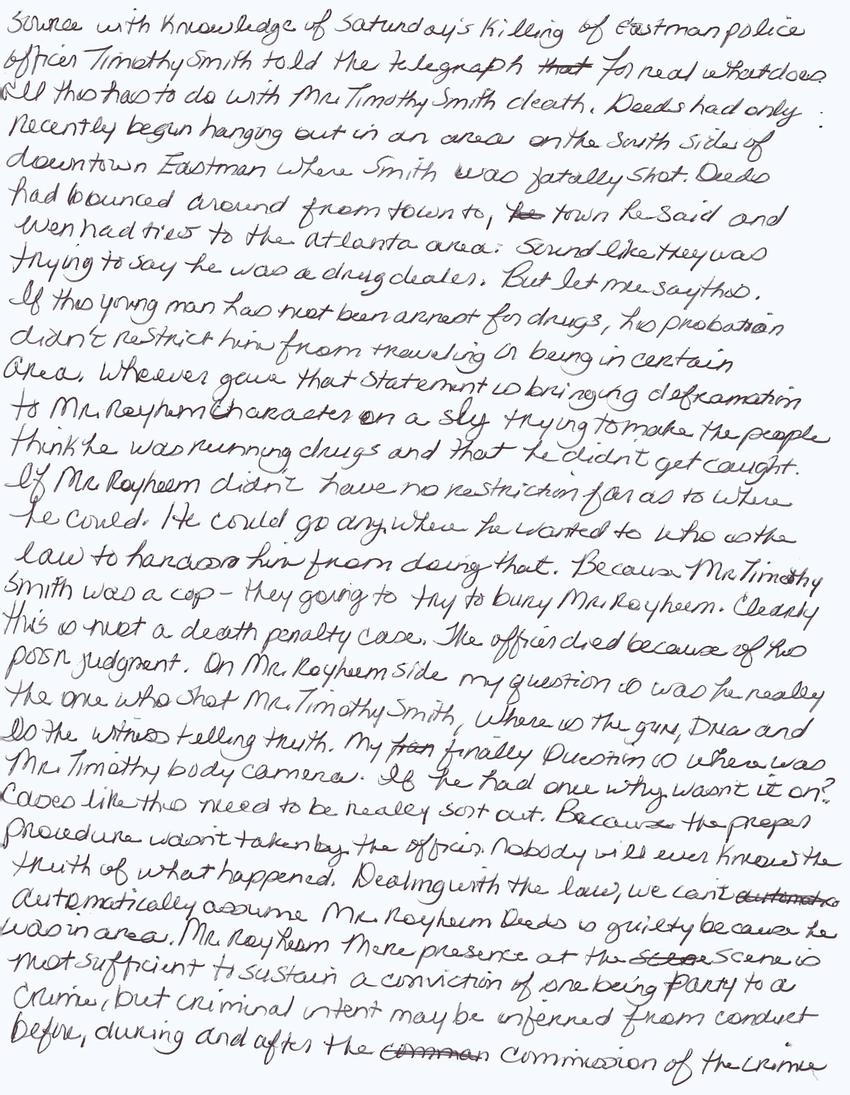 Source with Knowledge of Saturday's Killing of Eastman police
officer Timothy Smith told the telegraph that for real what does
all this has to do with Mr. Timothy Smith death. Deeds had only
Recently begun hanging out in an area on the South side of
downtown Eastman where Smith was fatally shot. Deeds
had bounced around from town to, he town he said and
even had ties to the atlanta area. Sound like they was
trying to say he was a drug dealer. But let me say this.
If this young man has not been arrest for drugs, his probation
didn't restrict him from traveling or being in certain
area. Whoever gave that statement is bringing deframation
to Mr. Rayheem Character on a sly trying to make the people
think he was running drugs and that he didn't get caught.
If Mr. Rayheem didn't have no restriction far as to where
he could. He could go anywhere he wanted to who is the
law to harass him from doing that. Because Mr. Timothy
Smith was a cop - they going to try to bury Mr. Rayheem. Clearly
this is not a death penalty case. The officer died because of his
poor judgment. On Mr. Rayheem side my question is was he really
the one who shot Mr. Timothy Smith, where is the gun, DNA and
Is the witness telling truth. My finally Question is where was
Mr. Timothy body camera. If he had one why wasn't it on?
Cases like this need to be really sort out. Because the proper
procedure wasn't taken by the officer. Nobody will ever know the
truth of what happened. Dealing with the law, we can't automatic
automatically assume Mr. Rayheem Deeds is guilty because he
was in area. Mr. Rayheem mere presence at the scene is
not sufficient to sustain a conviction of one being Party to a
Crime, but criminal intent may be inferred from conduct
before, during and after the comman commission of the crime